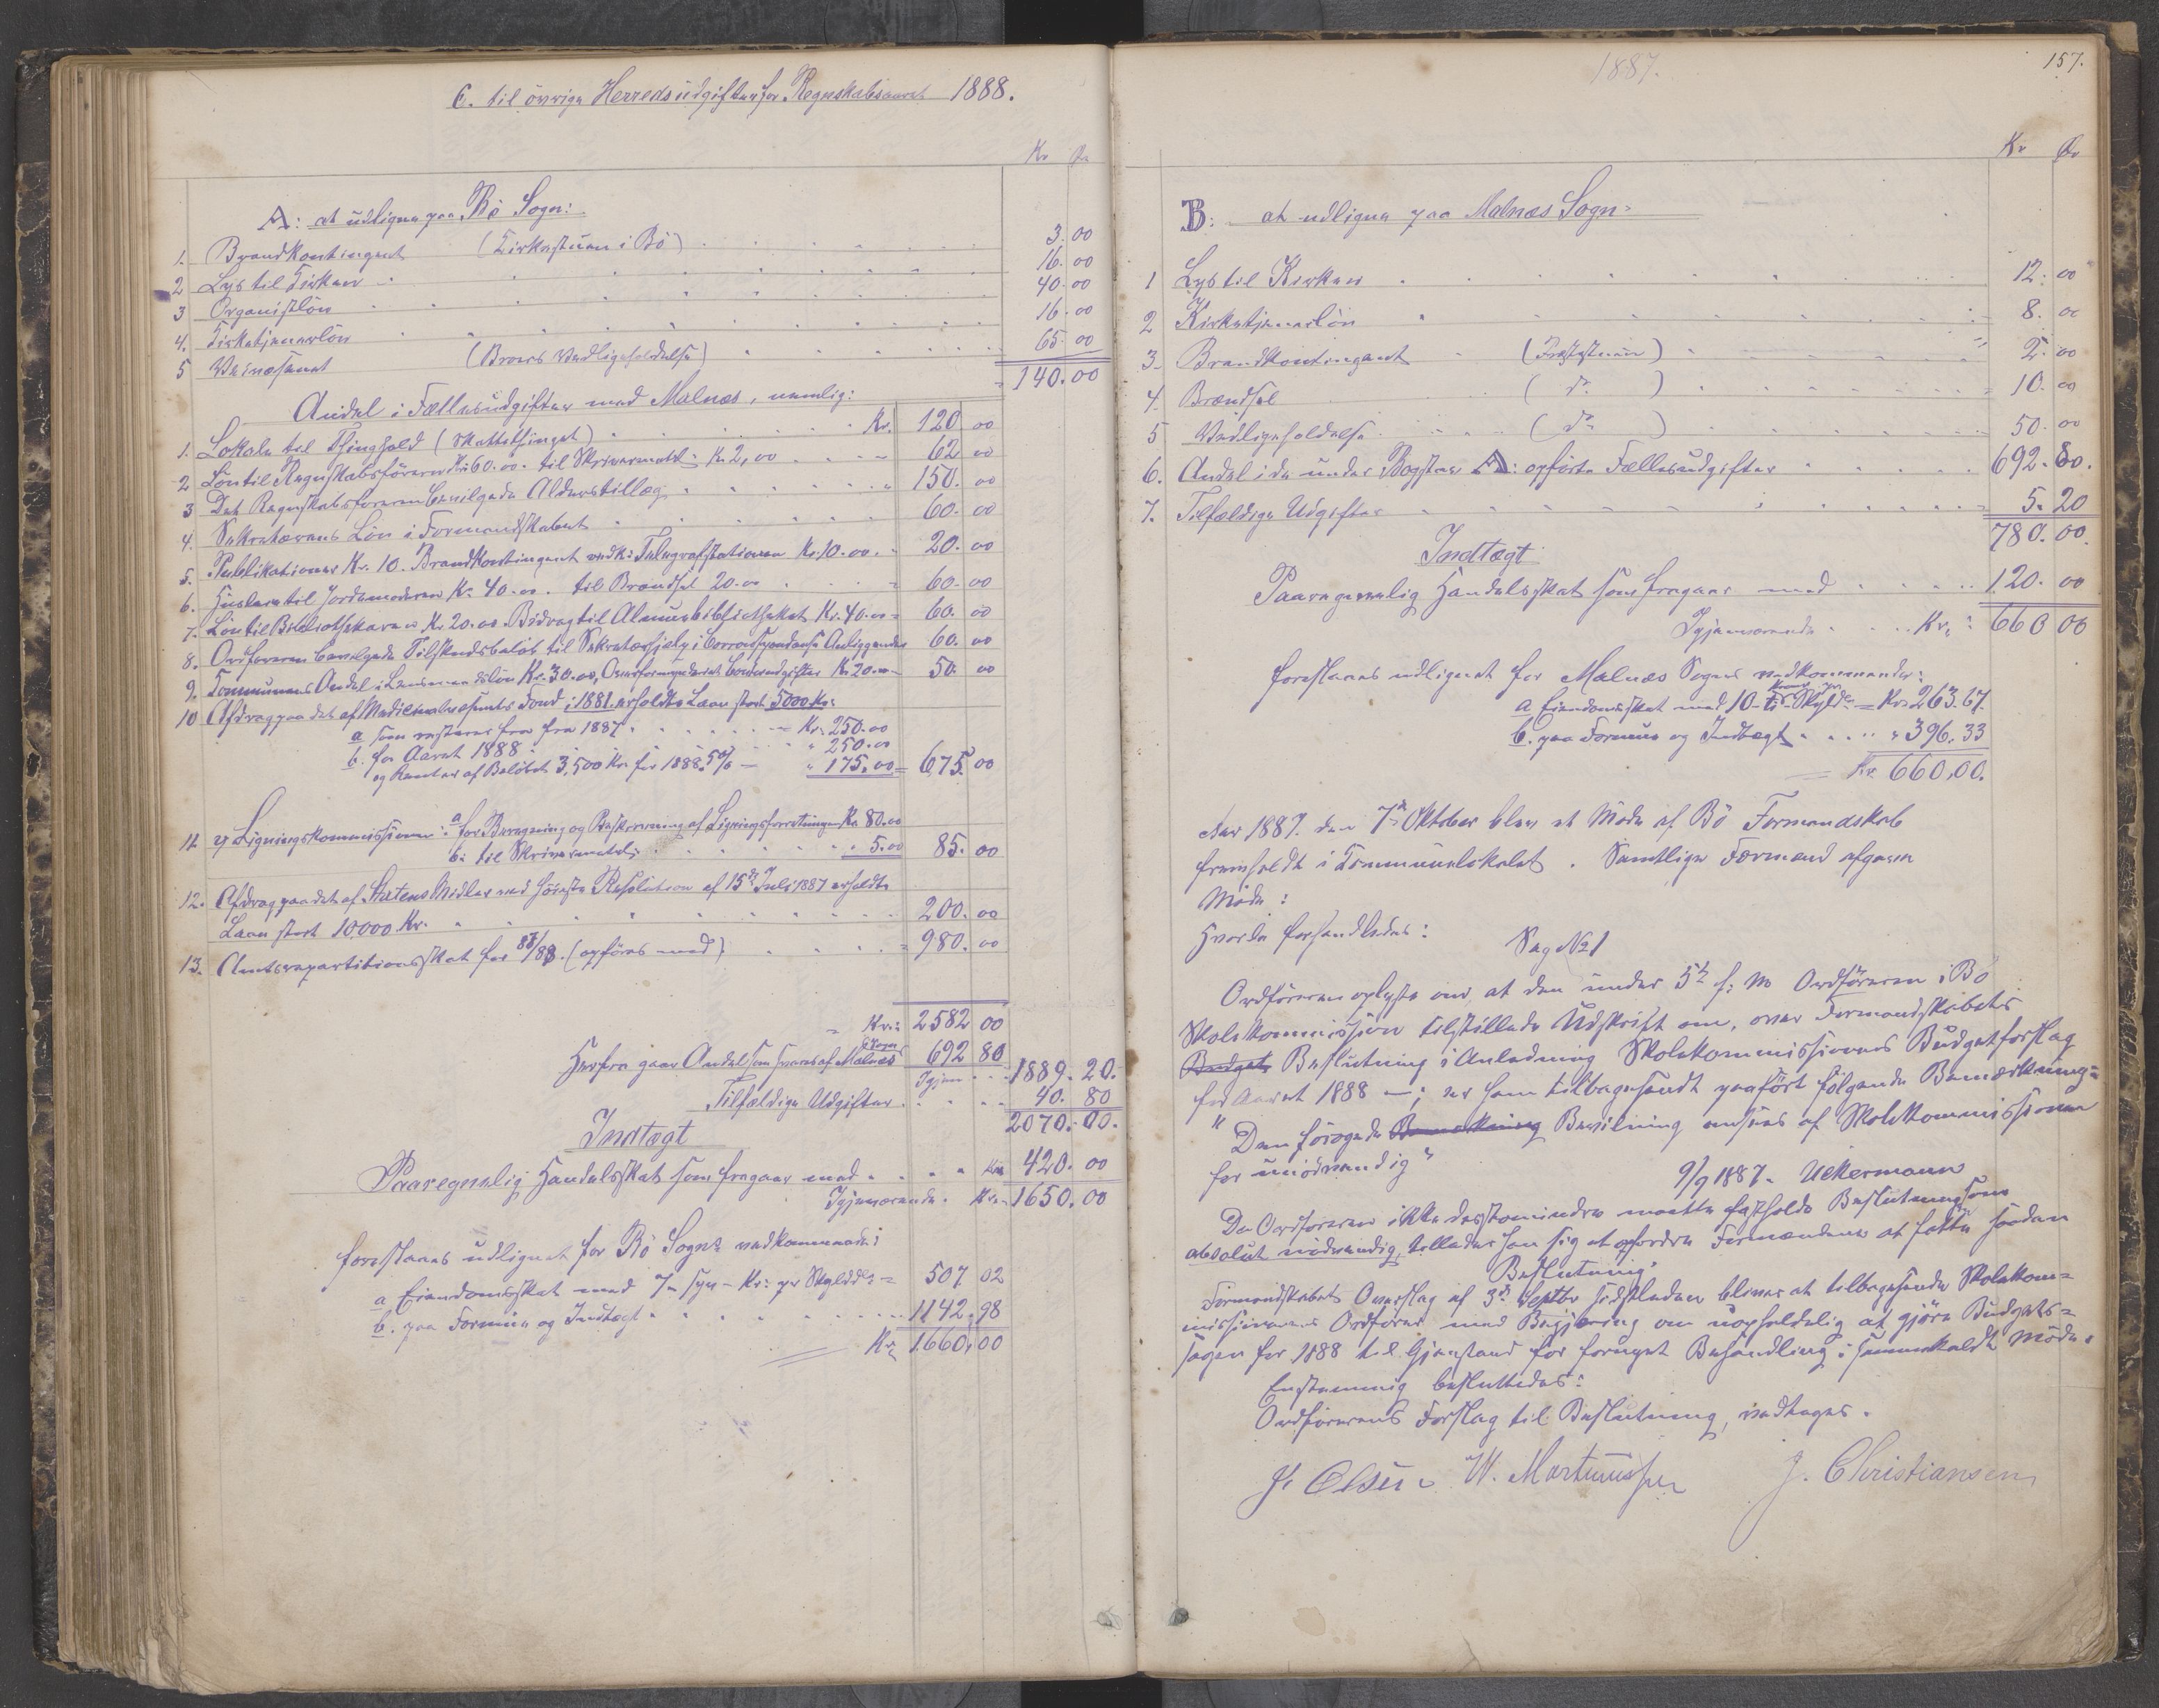 C. til övrige Herredsudgifter for Regnskabsaaret 1888.
Kr Ør
A: at udligne paa Bö Sogn:
1. Brandkontingent (Kirkestuen i Bö) 3.00
2 Lys til Kirken 16.00
3 Organistlön 40.00
4. Kirketjenerlön 16.00
5 Veivæsenet (Broers Vedligeholdelse) 65.00
140.00
Andel i Fællesudgifter med Malnæs, nemlig:
1. Lokale til Thinghold (Skattethinget) Kr. 120 00
2 Lön til Regnskabsföreren Kr 60.00. til Skrivermatr: Kr. 2,00 62 00
3 Det Regnskabsföreren bevilgede Alderstillæg 150.00
4. Sekretærens Lön i Formandskabet 60.00
5. Publikationer Kr. 10. Brandkontingent vedk: Telegrafstationen Kr. 10.00. 20.00
6. Husleie til Jordemoderen Kr. 40.00. til Brændsel 20.00 60.00
7. Lön til Bibliothekaren Kr. 20.00. Bidrag til Almuebibliotheket Kr. 40.00 60.00
8. Ordföreren bevilgede Tilskudsbeløb til Sekretærhjelp i Correspondanse Anliggender 60.00
9. Kommunens Andel i Lensmandslön Kr. 30.00, Overformynderiets Contorudgifter Kr. 20.00 50.00
10 Afdrag paa det af Medicinalvæsenets Fond i 1881. erholdte Laan stort 5000 Kr:
a som resterer fra fra 1887 Kr: 250.00
b. for Aaret 1888 " 250.00
og Renter af Beløbet 3,500 Kr. for 1888. 5% " 175.00 = 675.00
11. Ligningskommissionen: a for Beregning og Beskrivning af Ligningsforretningen Kr. 80.00
b: til Skrivematr. 5.00 85.00
12. Afdrag paa det af Statens Midler ved höieste Resolution af 15de Juli 1887 erholdte
Laan stort 10000 Kr. 200.00
13. Amtsrepartitionsskat for 87/88. (opföres med) 980.00
Kr.: 2582 00
Herfra gaar Andel som svares af Malnæs Sogn 692 80
Igjen 1889.20.
Tilfældige Udgifter 40.80
2070.00.
Indtægt
Paaregnelig Handelsskat som fragaar med Kr. 420.00
Igjenværende Kr. 1650.00
foreslaaes udlignet for Bö Sogns vedkommende:
a Eiendomsskat med 7- syv - Kr: pr Skylddlr = 507 02
b. paa Formue og Indtægt 1142.98
Kr. 1660,00
1887.
157.
Kr Ør
B: at udligne paa Malnæs Sogn:
1 Lys til Kirken 12.00
2 Kirketjenerlön 8.00
3. Brandkontingent (Præstestuen) 2.00
4. Brændsel (do) 10.00
5 Vedligeholdelse (do) 50.00
6. Andel i de under Bogstav A: opförte Fællesudgifter 692.80.
7. Tilfældige Udgifter 5.20
780.00.
Indtægt
Paaregnelig Handelsskat som fragaar med 120.00
Igjenværende Kr. 660 00
foreslaaes udlignet for Malnæs Sogns vedkommende:
a Eiendomsskat med 10-ti- Kroner pr Skylddlr = Kr. 263.67.
b. paa Formue og Indtægt " 396.33
Kr. 660,00.
Aar 1887. den 7de Oktober blev et Möde af Bö Formandskab
fremholdt i Kommunelokalet. Samtlige Formænd afgaven
Möde:
Hvorda forhandledes:
Sag No 1
Ordföreren oplyste om, at den under 5te f: M Ordföreren i Bö
Skolekommission tilstillede Udskrift om, over Formandskabets
Budgets Beslutning i Anledning Skolekommissionens Budgetforslag
for Aaret 1888 —; er ham tilbagesendt paaført følgende Bemærkning=
" Den forøgede Bemærkning Bevilgning ansees af Skolekommissionen
for unödvendig "
9/9 1887. Uckermann
Da Ordföreren ikke destomindre maatte fastholde Beslutning som
absolut nødvendig, tillader han sig at opfordre Formændene at fatte saadan
Beslutning:
Formandskabets Overslag af 3de Septbr sidstleden bliver at tilbagesende Skolekom=
missionens Ordförer med Begjæring om uopholdelig at gjöre Budgets=
sagen for 1888 til Gjenstand for fornyet Behandling i sammenkaldt Möde.
Enstemmig besluttedes:
Ordförerens Forslag til Beslutning, vedtages.
J. Olsen. W. Martinussen J. Christiansen